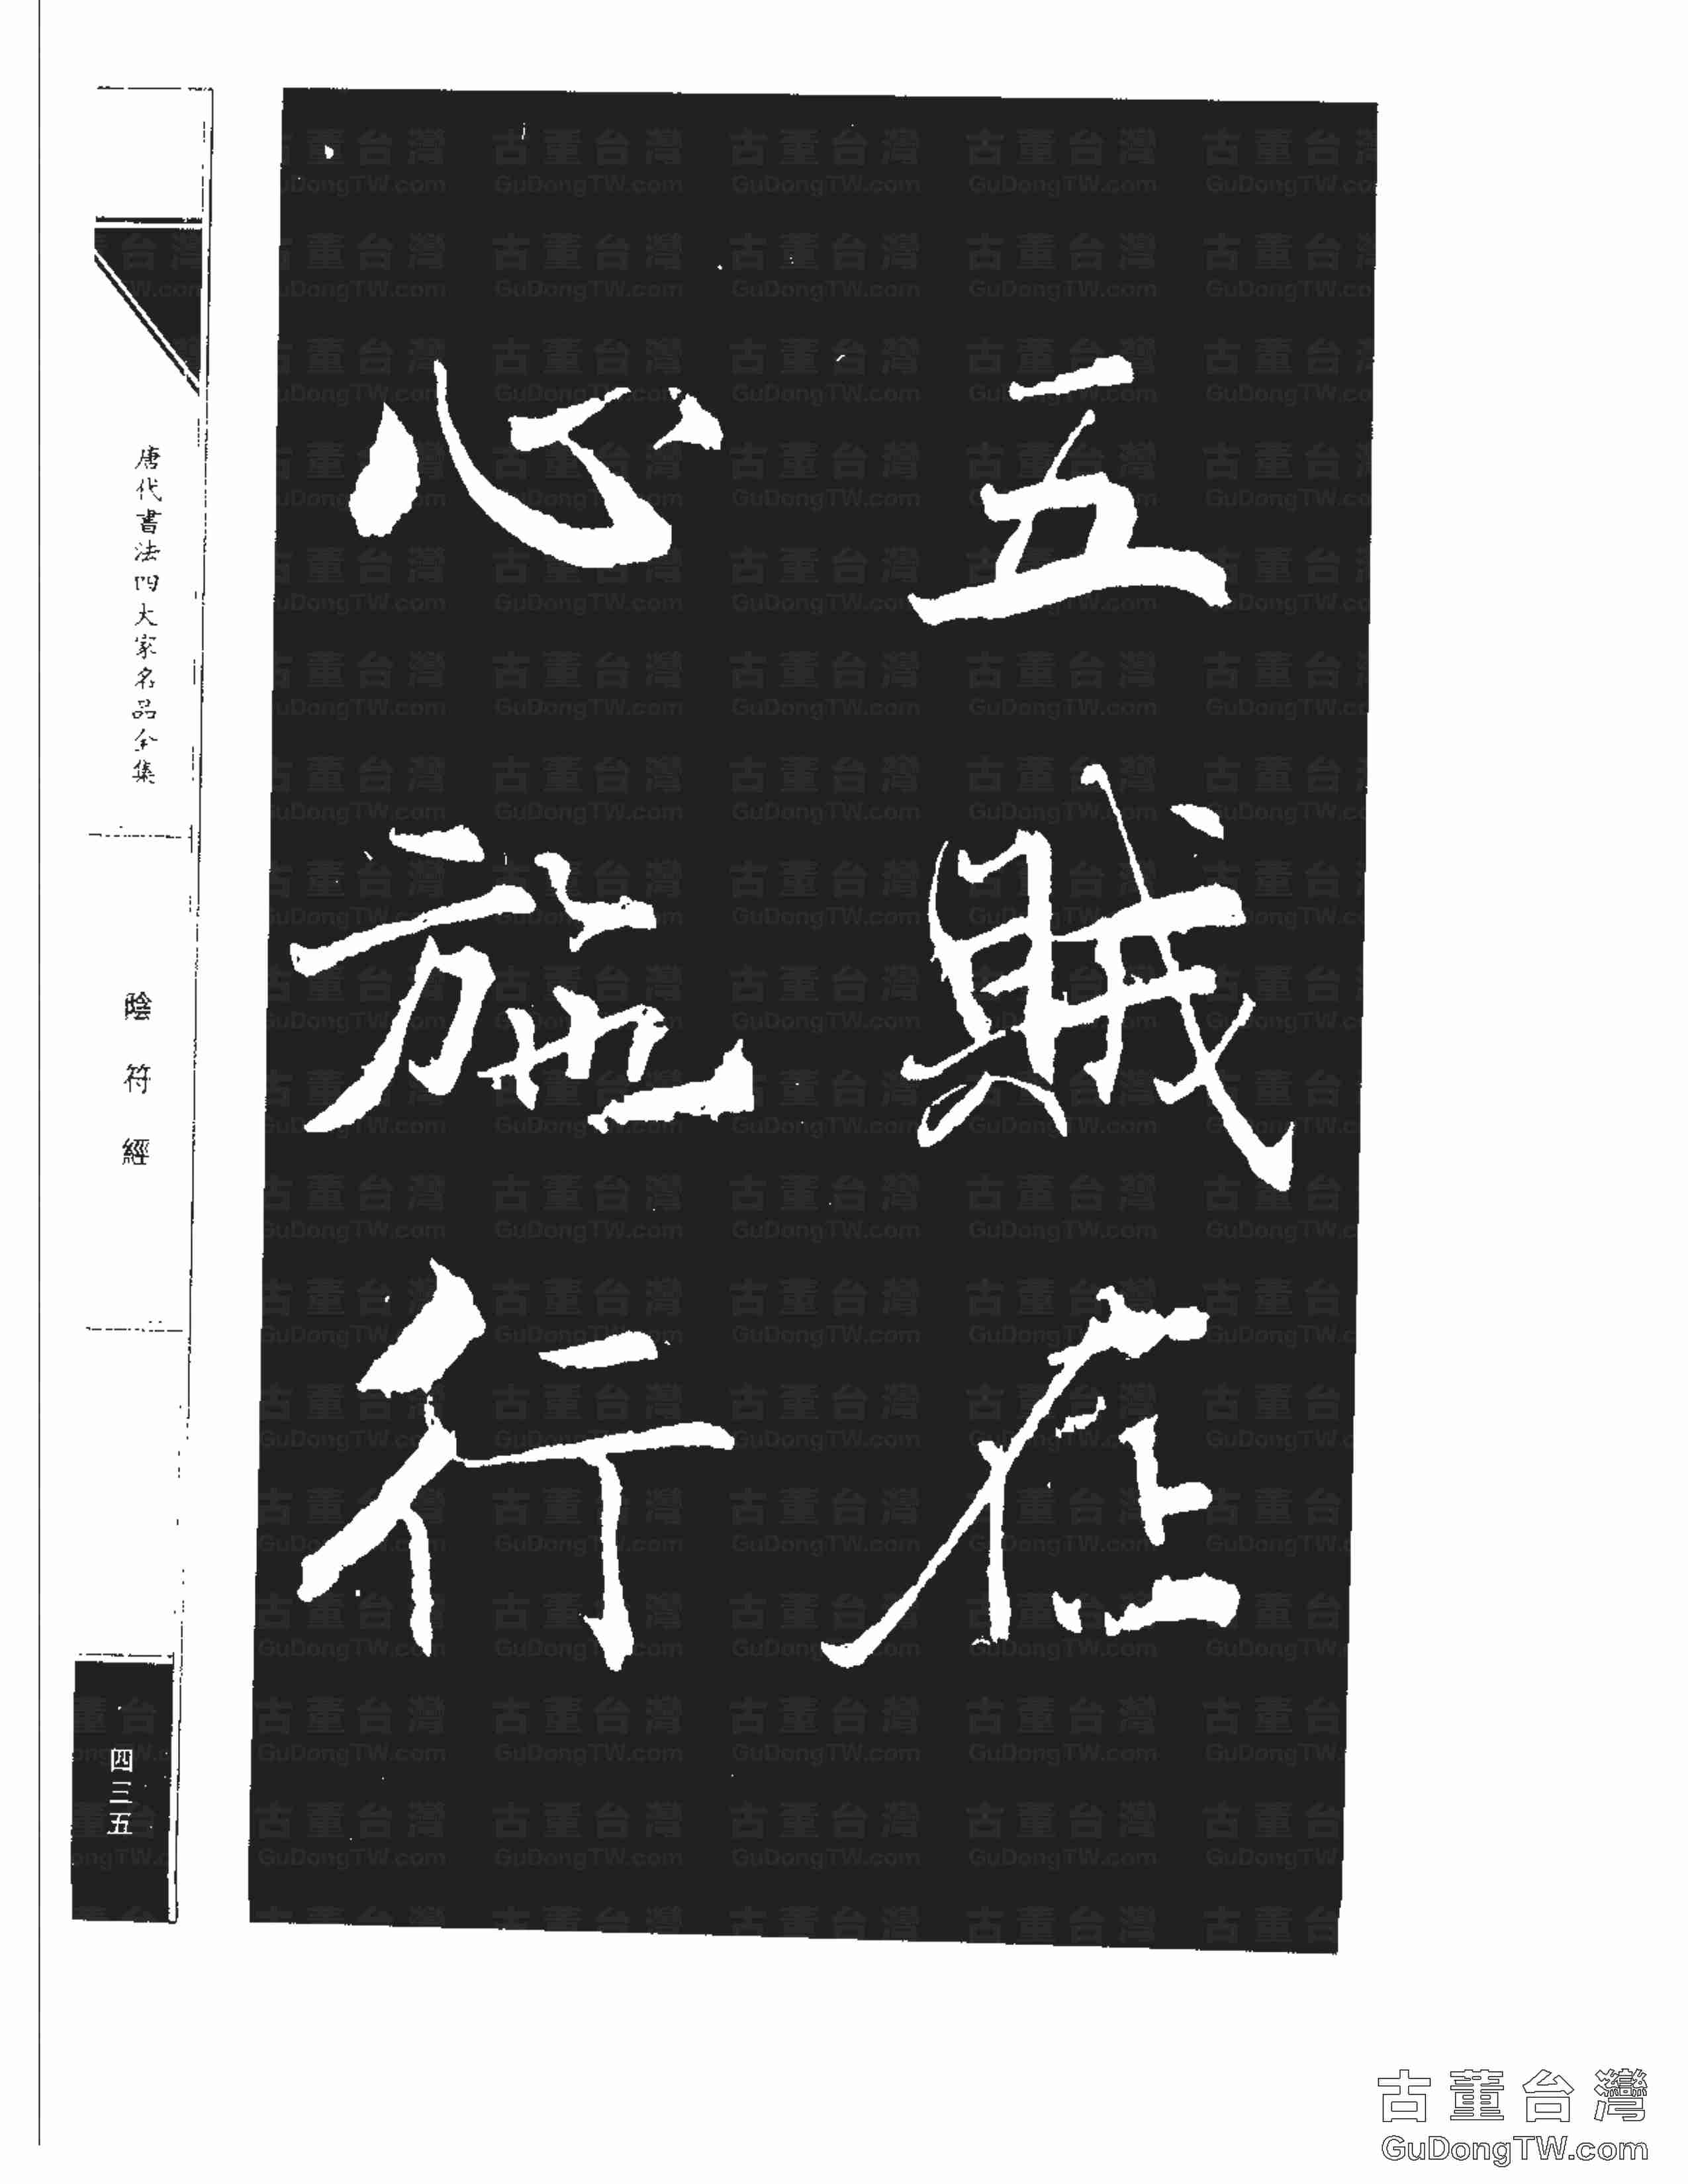 五賊在
心施行
唐代書法四大家名品全集
陰符經
四三五
古董台灣
GuDongTW.com